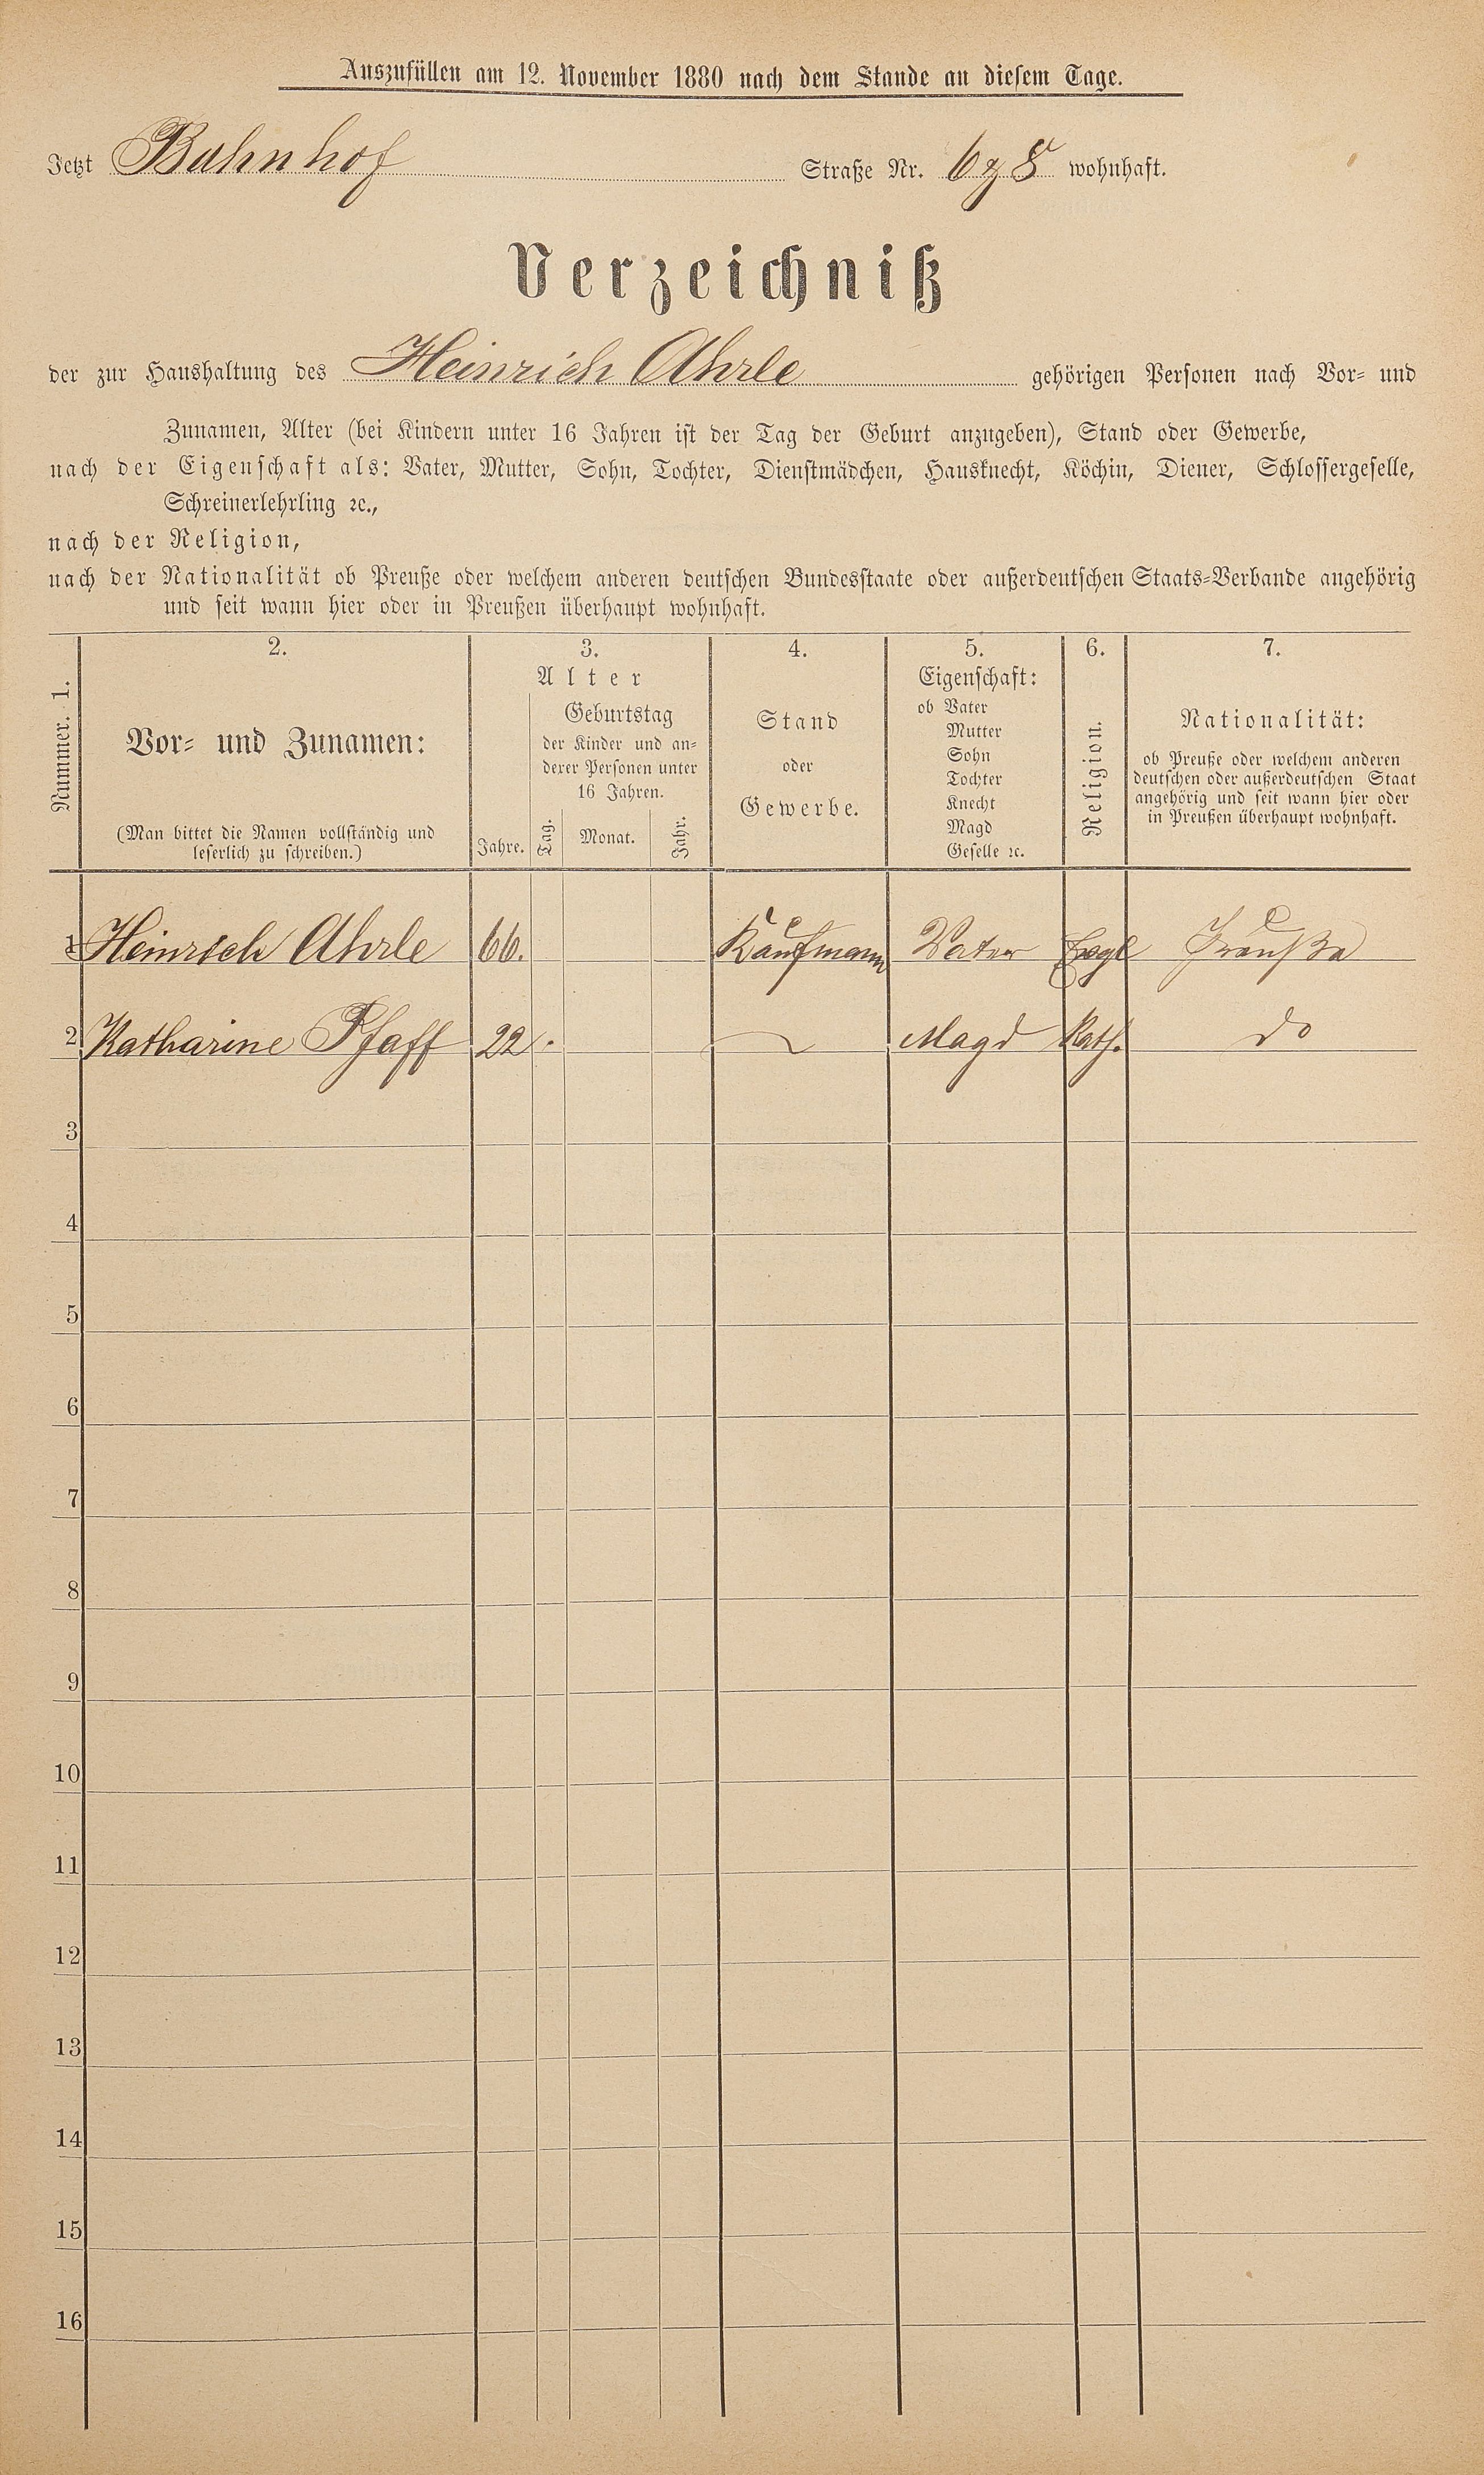 Auszufüllen am 12. November 1880 nach dem Stande an diesem Tage.
Jetzt Bahnhof Straße Nr. 6 z 8 wohnhaft.
Verzeichniß
der zur Haushaltung des Heinrich Ahrle gehörigen Personen nach Vor- und
Zunamen, Alter (bei Kindern unter 16 Jahren ist der Tag der Geburt anzugeben), Stand oder Gewerbe,
nach der Eigenschaft als: Vater, Mutter, Sohn, Tochter, Dienstmädchen, Hausknecht, Köchin, Diener, Schlossergeselle,
Schreinerlehrling ꝛc.,
nach der Religion,
nach der Nationalität ob Preuße oder welchem anderen deutschen Bundesstaate oder außerdeutschen Staats-Verbande angehörig
und seit wann hier oder in Preußen überhaupt wohnhaft.
Nummer. 1.
2.
Vor- und Zunamen:
(Man bittet die Namen vollständig und
leserlich zu schreiben.)
3.
Alter
Jahre.
Geburtstag
der Kinder und an-
derer Personen unter
16 Jahren.
Tag. Monat. Jahr.
4.
Stand
oder
Gewerbe.
5.
Eigenschaft:
ob Vater
Mutter
Sohn
Tochter
Knecht
Magd
Geselle ꝛc.
6.
Religion.
7.
Nationalität:
ob Preuße oder welchem anderen
deutschen oder außerdeutschen Staat
angehörig und seit wann hier oder
in Preußen überhaupt wohnhaft.
1 Heinrich Ahrle 66. Kaufmann Vater Evgl Preuße
2 Katharine Pfaff 22. Magd Kath. do
3
4
5
6
7
8
9
10
11
12
13
14
15
16